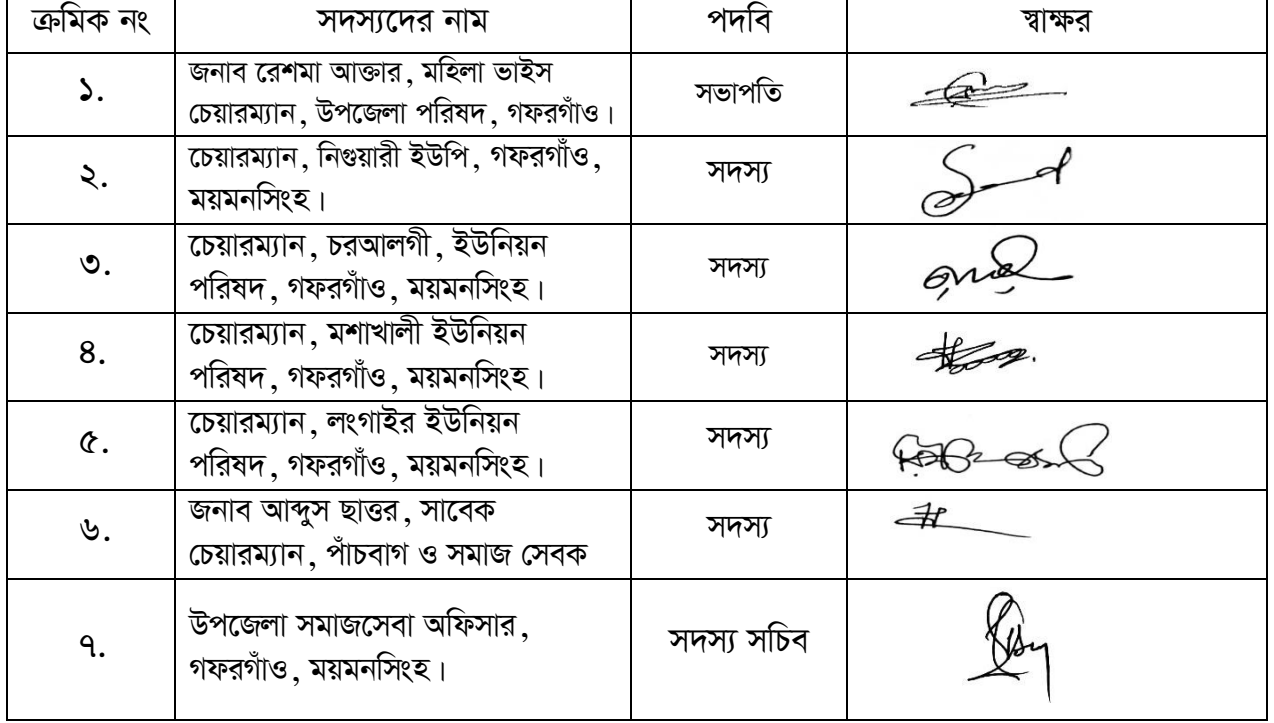 ক্রমিক নং সদস্যদের নাম পদবি স্বাক্ষর
১. জনাব রেশমা আক্তার, মহিলা ভাইস
চেয়ারম্যান, উপজেলা পরিষদ, গফরগাঁও। সভাপতি
২. চেয়ারম্যান, নিগুয়ারী ইউপি, গফরগাঁও,
ময়মনসিংহ। সদস্য
৩. চেয়ারম্যান, চরআলগী, ইউনিয়ন
পরিষদ, গফরগাঁও, ময়মনসিংহ। সদস্য
৪. চেয়ারম্যান, মশাখালী ইউনিয়ন
পরিষদ, গফরগাঁও, ময়মনসিংহ। সদস্য
৫. চেয়ারম্যান, লংগাইর ইউনিয়ন
পরিষদ, গফরগাঁও, ময়মনসিংহ। সদস্য
৬. জনাব আব্দুস ছাত্তর, সাবেক
চেয়ারম্যান, পাঁচবাগ ও সমাজ সেবক সদস্য
৭. উপজেলা সমাজসেবা অফিসার,
গফরগাঁও, ময়মনসিংহ। সদস্য সচিব